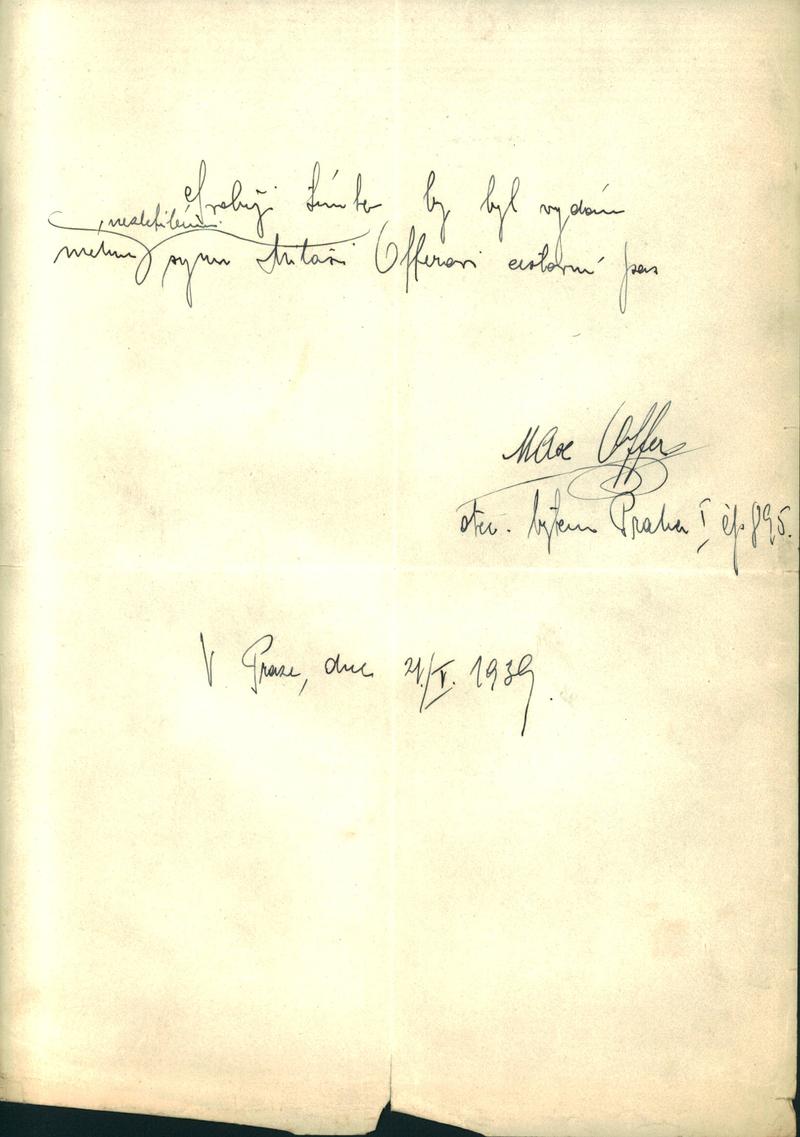 Svoluji tímto by byl vydán
nezletilému
mému synu Miloši Offerovi cestovní pas
Max Offer
otec. bytem Praha I, čp 895.
V Praze, dne 21./V. 1939.